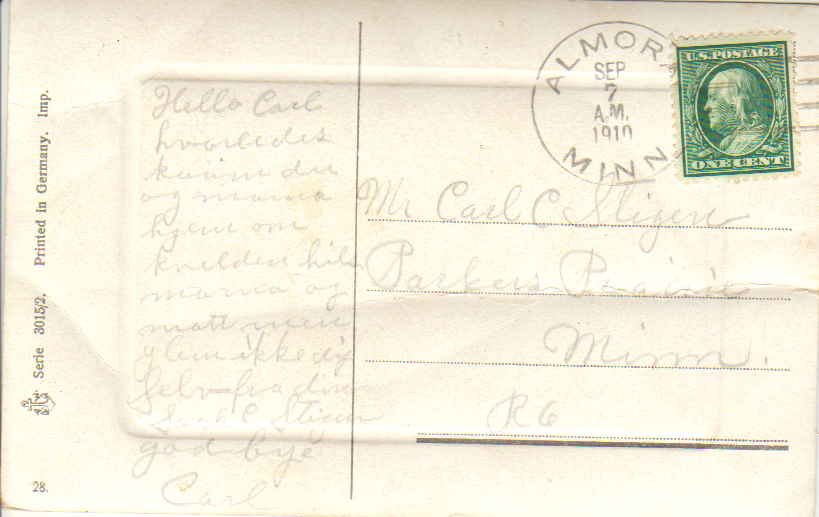 Hello Carl
hvorledes
kaim du
og mama
hjem om
kvelden hils
mama og
matt men
glem ikke dig
selv fra din
Stigen
god bye
Carl
ALMORA
SEP
7
A.M.
1910
MINN
U.S. POSTAGE
ONE CENT
Mr Carl C Stigen
Parkers Prairie
Minn.
R 6
28. Serie 3015/2. Printed in Germany. Imp.